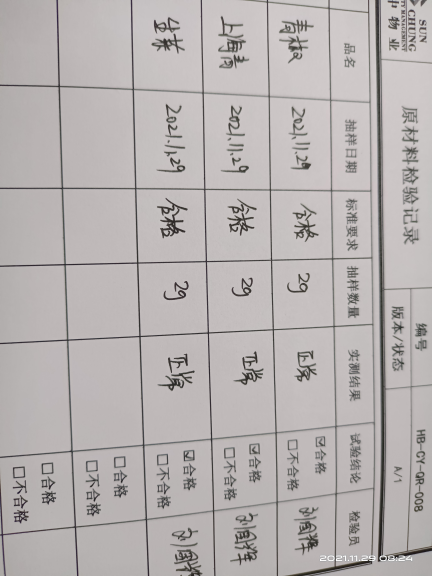 SUN
CHUNG
TY MANAGEMENT
中物业
原材料检验记录
编号 HB-CY-QR-008
版本/状态 A/1
品名 抽样日期 标准要求 抽样数量 实测结果 试验结论 检验员
青椒 2021.11.29 合格 2g 正常 ☑合格 □不合格 刘国辉
上海青 2021.11.29 合格 2g 正常 ☑合格 □不合格 刘国辉
2021.11.29 合格 2g 正常 ☑合格 □不合格 刘国辉
□合格 □不合格
□合格 □不合格
2021.11.29 08:24